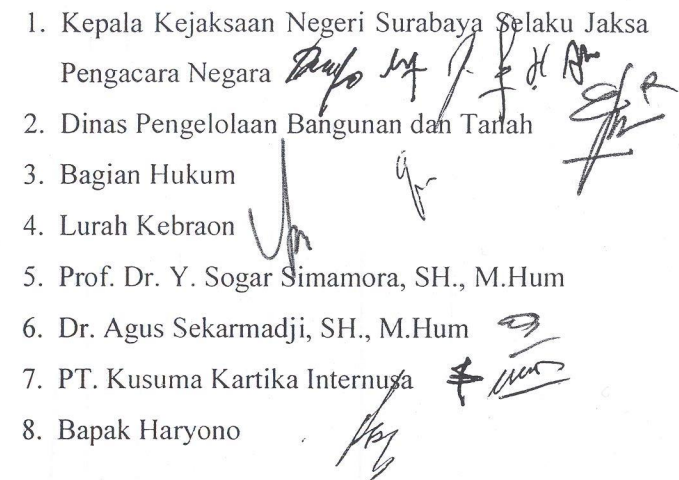 1. Kepala Kejaksaan Negeri Surabaya Selaku Jaksa
Pengacara Negara
2. Dinas Pengelolaan Bangunan dan Tanah
3. Bagian Hukum
4. Lurah Kebraon
5. Prof. Dr. Y. Sogar Simamora, SH., M.Hum
6. Dr. Agus Sekarmadji, SH., M.Hum
7. PT. Kusuma Kartika Internusa
8. Bapak Haryono